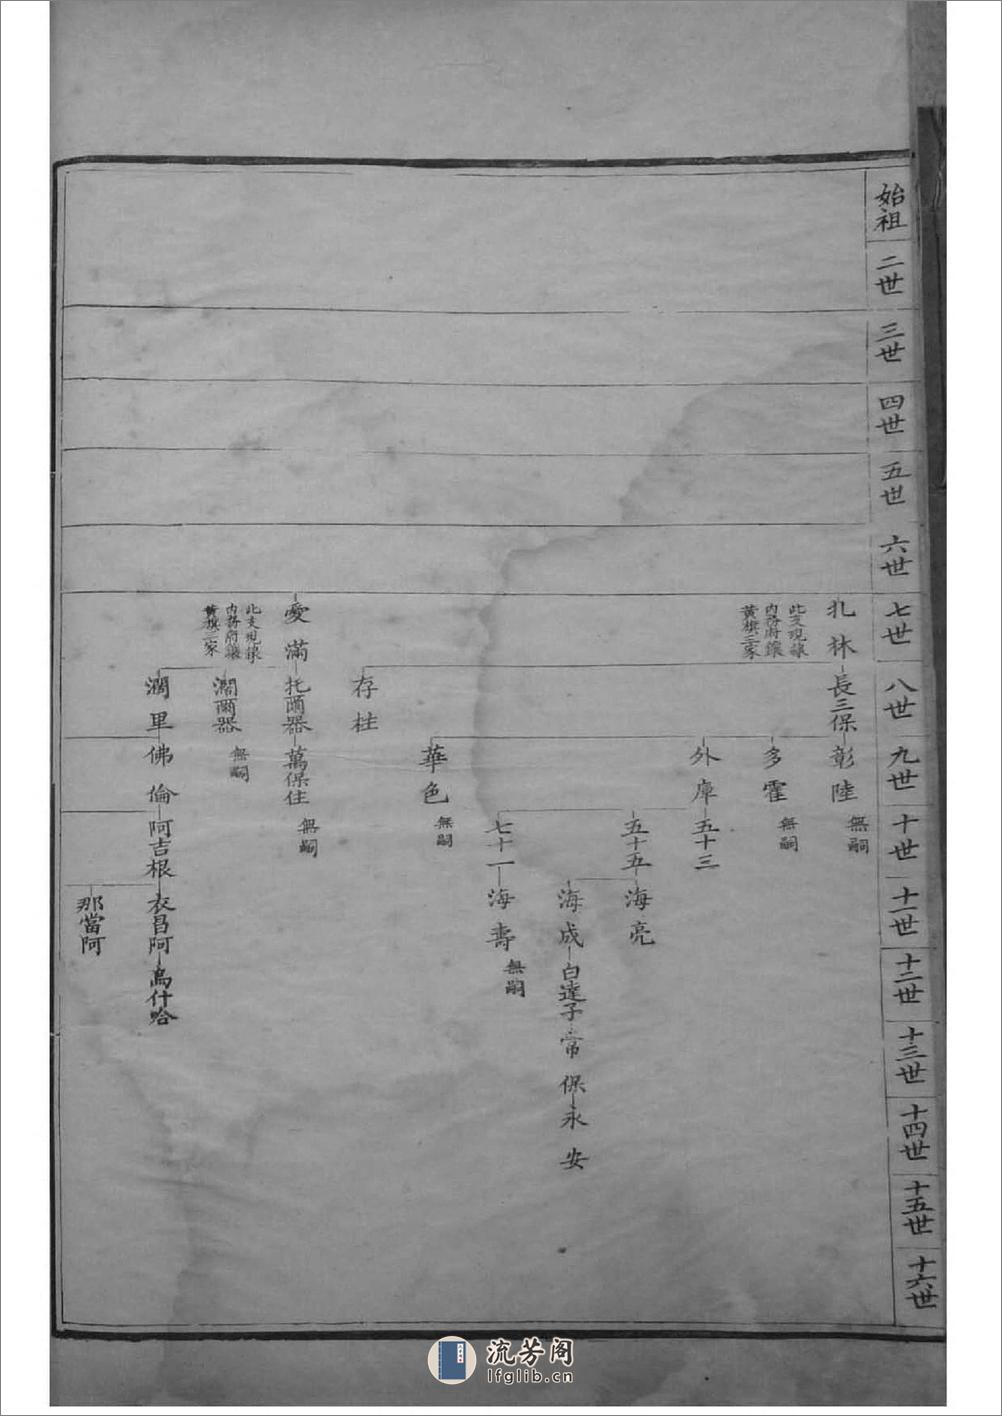 始祖
二世
三世
四世
五世
六世
七世
八世
九世
十世
十一世
十二世
十三世
十四世
十五世
十六世
扎林
長三保
彰陸
無嗣
此支現隷
内務府鑲
黃旗三家
多霍
無嗣
外庫
五十三
五十五
海亮
海成
白達子
常保
永安
七十一
海壽
無嗣
華色
無嗣
存柱
愛滿
托爾器
萬保住
無嗣
此支現隷
内務府鑲
黃旗三家
濶爾器
無嗣
濶里
佛倫
阿吉根
衣昌阿
烏什哈
那當阿
流芳阁
lfglib.cn